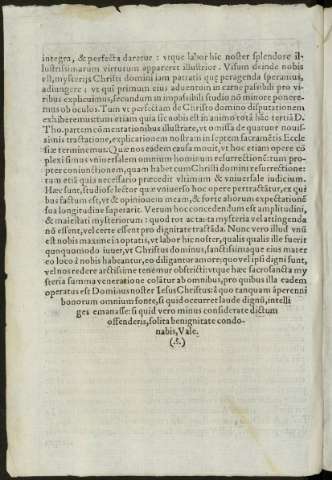 integra, & perfecta daretur : vtque labor hic noster splendore il-
lustrissimarum virtutum appareret illustrior. Visum deinde nobis
est, mysterijs Christi domini iam patratis quæ peragenda speramus,
adiungere ; vt qui primum eius aduentum in carne passibili pro vi-
ribus explicuimus, secundum in impassibili studio nō minore ponere-
mus ob oculos. Tum vt perfectam de Christo domino disputationem
exhiberemus: tum etiam quia sic nobis est in animo totā hāc tertiā D.
Tho. partem cōmentationibus illustrare, vt omissa de quatuor nouis-
simis tractatione, explicationem nostram in septem sacramētis Eccle
siæ terminemus. Quæ nos eadem causa mouit, vt hoc etiam opere cō
plexi simus vniuersalem omnium hominum resurrectionē: tum pro-
pter coniunctionem, quam habet cum Christi domini resurrectione:
tum etiā quia necessario præcedit vltimum & vniuersale iudicium.
Hæc sunt, studiose lector quæ vniuerso hoc opere pertractātur, ex qui
bus factum est, vt & opinionem meam, & forte aliorum expectationē
sua longitudine superarit. Verum hoc concedendum est amplitudini,
& maiestati mysteriorum : quod tot ac tāta mysteria vel attingenda
nō essent, vel certe essent pro dignitate tractāda. Nunc vero illud vnū
est nobis maxime in optatis, vt labor hic noster, qualis qualis ille fuerit
quoquomodo iuuet, vt Christus dominus, sanctissimaque eius mater
eo loco à nobis habeantur, eo diligantor amore; quo vel ipsi digni sunt,
vel nos redere arctissime tenemur obstricti: vtque hæc sacrosancta my
steria summa veneratione colātur ab omnibus, pro quibus illa eadem
operatus est Dominus noster Iesus Christus: à quo tanquam à perenni
bonorum omnium fonte, si quid occurret laude dignū, intelli
ges emanasse: si quid vero minus considerate dictum
offenderis, solita benignitate condo-
nabis, Vale.